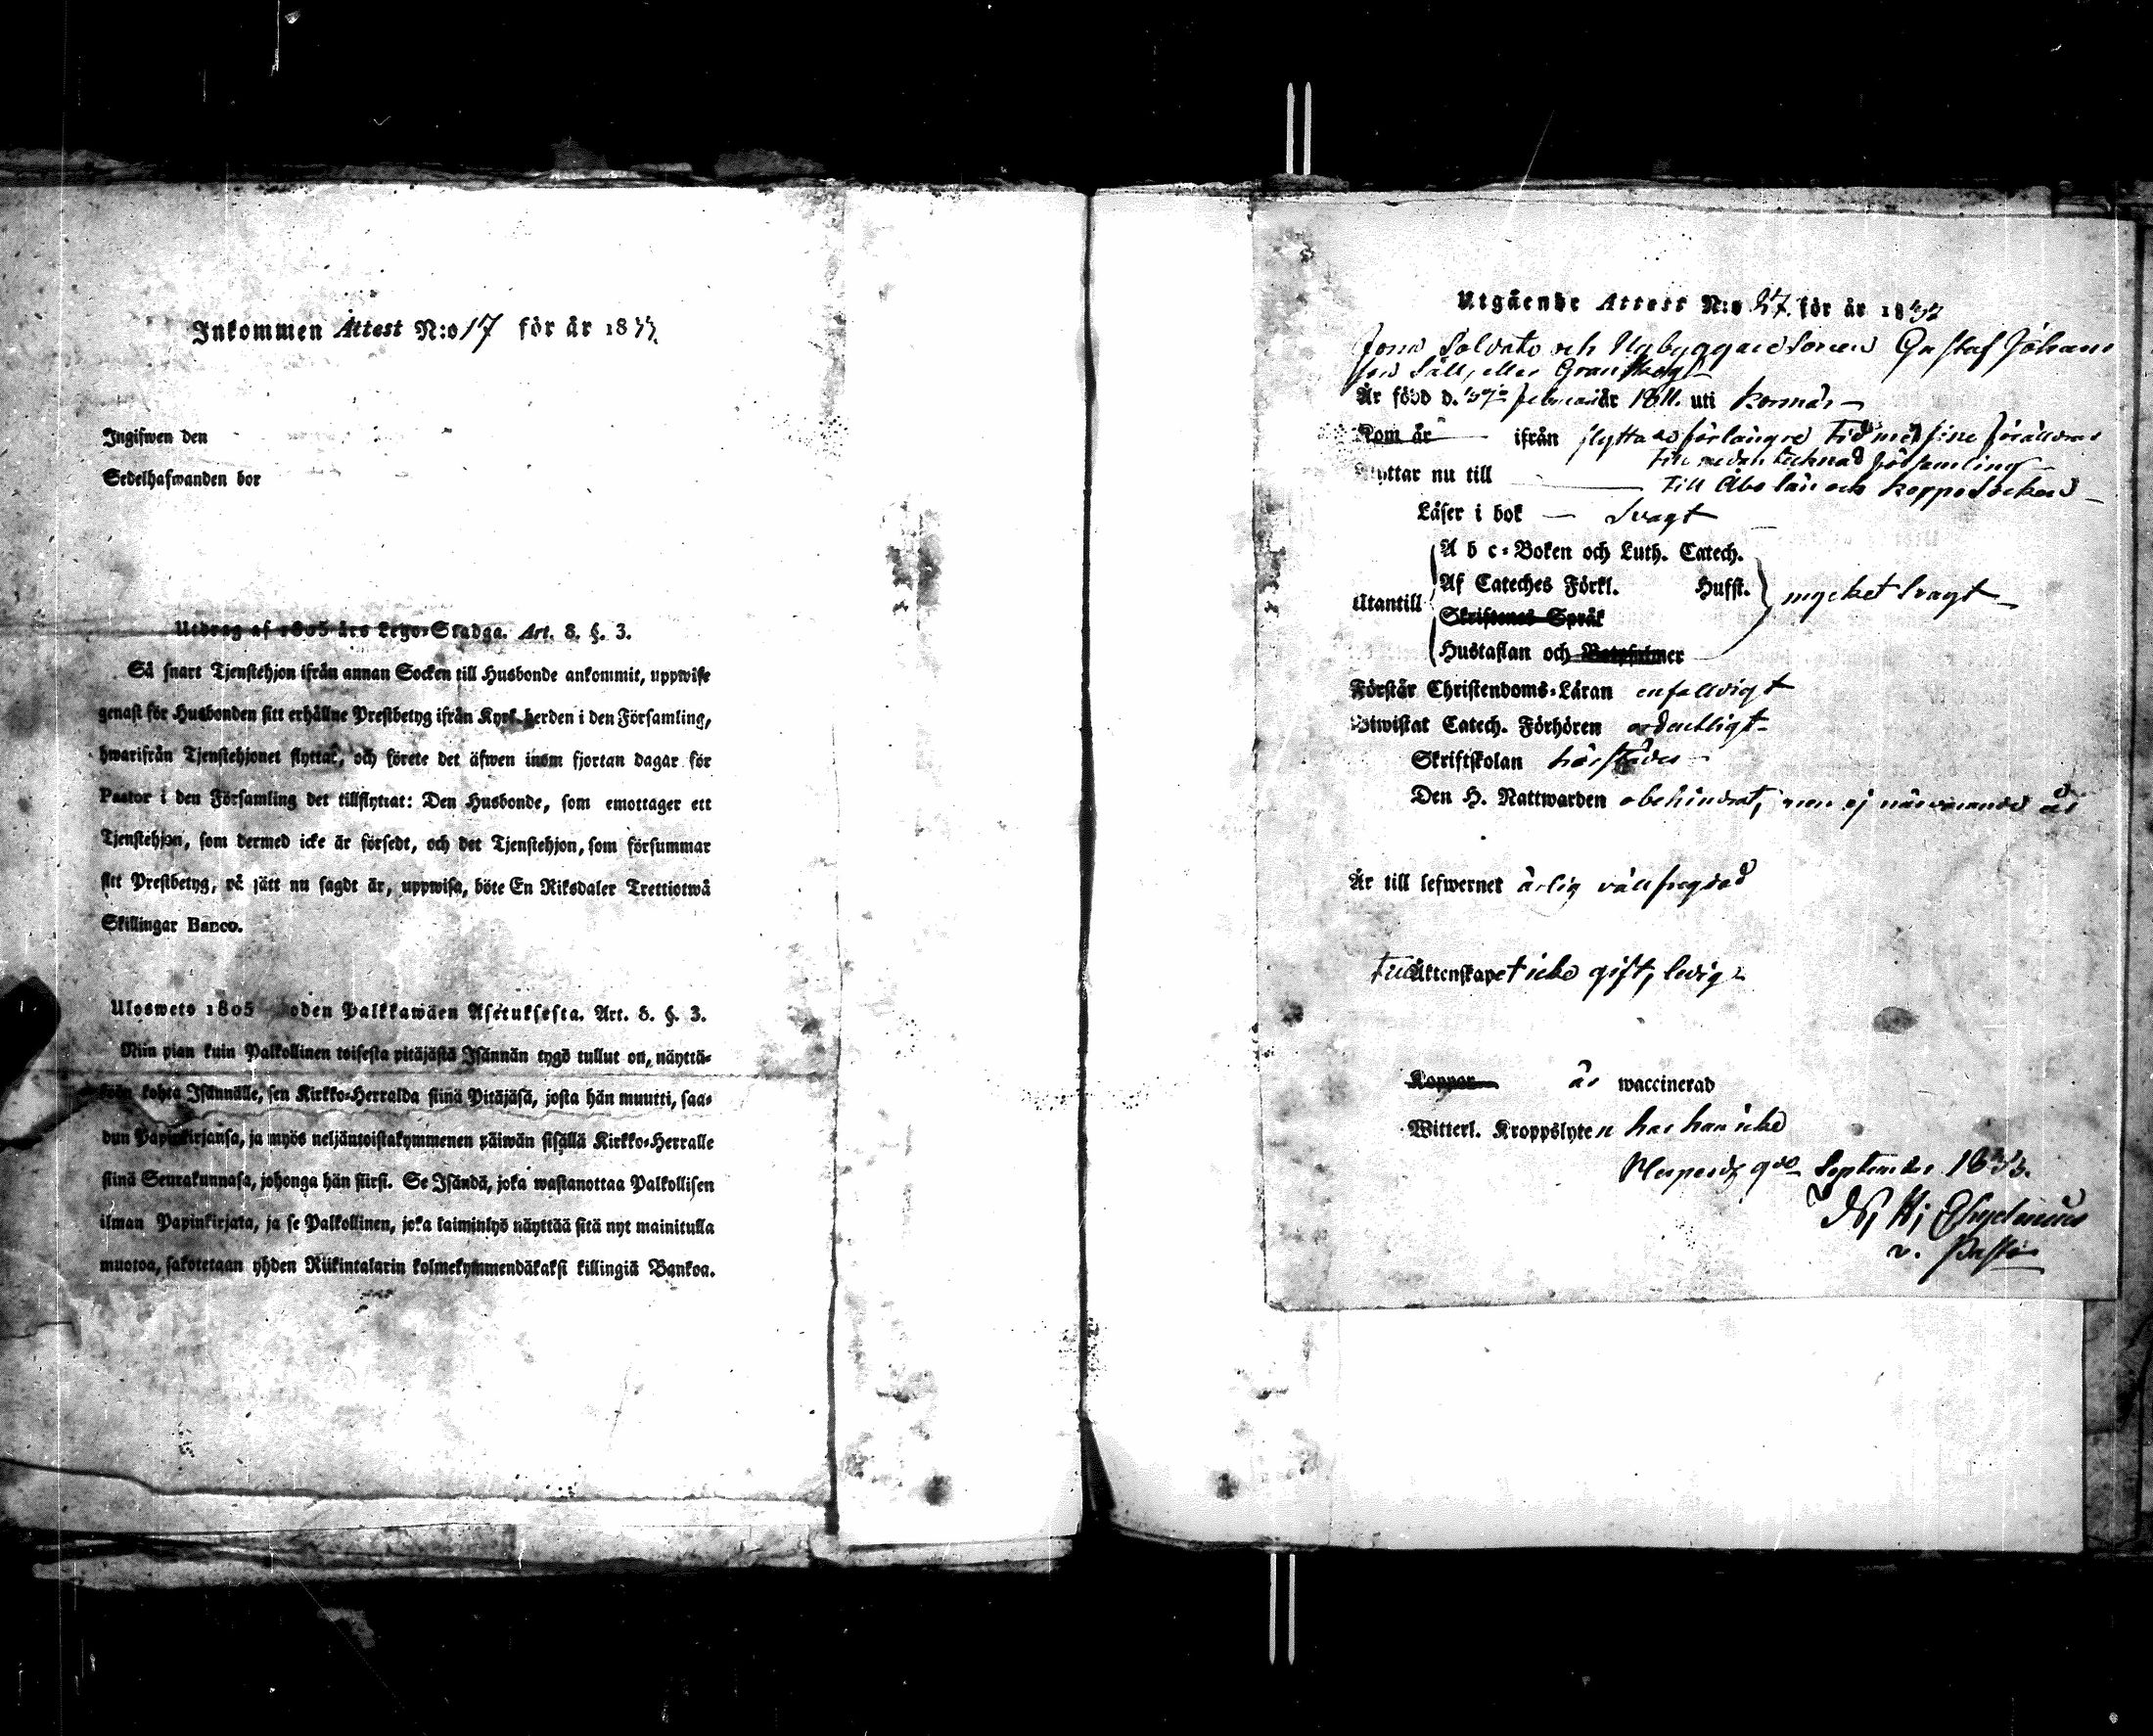 Inkommen Attest N:o 17 för år 1833.
Ingifwen den
Sedelhafwanden bor
Utdrag af 1805 års Lego-Stadga. Art. 8. §. 3.
Så snart Tjenstehjon ifrån annan Socken till Husbonde ankommit, uppwise
genast för Husbonden sitt erhållne Prestbetyg ifrån Kyrkoherden i den Församling,
hwarifrån Tjenstehjonet flyttat, och förete det äfwen inom fjortan dagar för
Pastor i den Församling det tillflyttat: Den Husbonde, som emottager ett
Tjenstehjon, som dermed icke är försedt, och det Tjenstehjon, som försummar
sitt Prestbetyg, på sätt nu sagdt är, uppwisa, böte En Riksdaler Trettiotwå
Skillingar Banco.
Ulosweto 1805 oden Palkkawäen Asetuksesta. Art. 8. §. 3.
Niin pian kuin Palkollinen toisesta pitäjästä Isännän tygö tullut on, näyttä-
köön kohta Isännälle, sen Kirkko-Herralda siinä Pitäjäsä, josta hän muutti, saa-
dun Papinkirjansa, ja myös neljäntoistakymmenen päiwän sisällä Kirkko-Herralle
siinä Seurakunnasa, johonga hän siirsi. Se Isändä, joka wastanottaa Palkollisen
ilman Papinkirjata, ja se Palkollinen, joka laiminlyö näyttää sitä nyt mainitulla
muotoa, sakotetaan yhden Riikintalarin kolmekymmendäkaksi killingiä Bankoa.
Utgående Attest N:o 27. för år 1833
Soldats och Nybyggaresonen Gustaf Johans
son Säll, eller Grantberg
År född d. februari år 1811. uti Korsnäs
Kom år ifrån flyttade för längre tid med sine föräldrar
till nedantecknad församling
Flyttar nu till till Åbo län och Koppo Socken
Läser i bok Svagt
A b c-Boken och Luth. Catech.
Af Cateches Förkl. Husst.
Utantill mycket Svagt
Skriftenes Språk
Hustaflan och Botpsalmer
Förstår Christendoms-Läran enfalldigt
Biwistat Catech. Förhören ordentligt
Skriftskolan härstädes
Den H. Nattwarden obehindrat, men ej närvarande år
År till lefwernet ärlig väl frejdad
Till Äktenskapet icke gift, ledig
Koppor är waccinerad
Witterl. Kroppslyten har han icke
September 1833.
v. Pastor